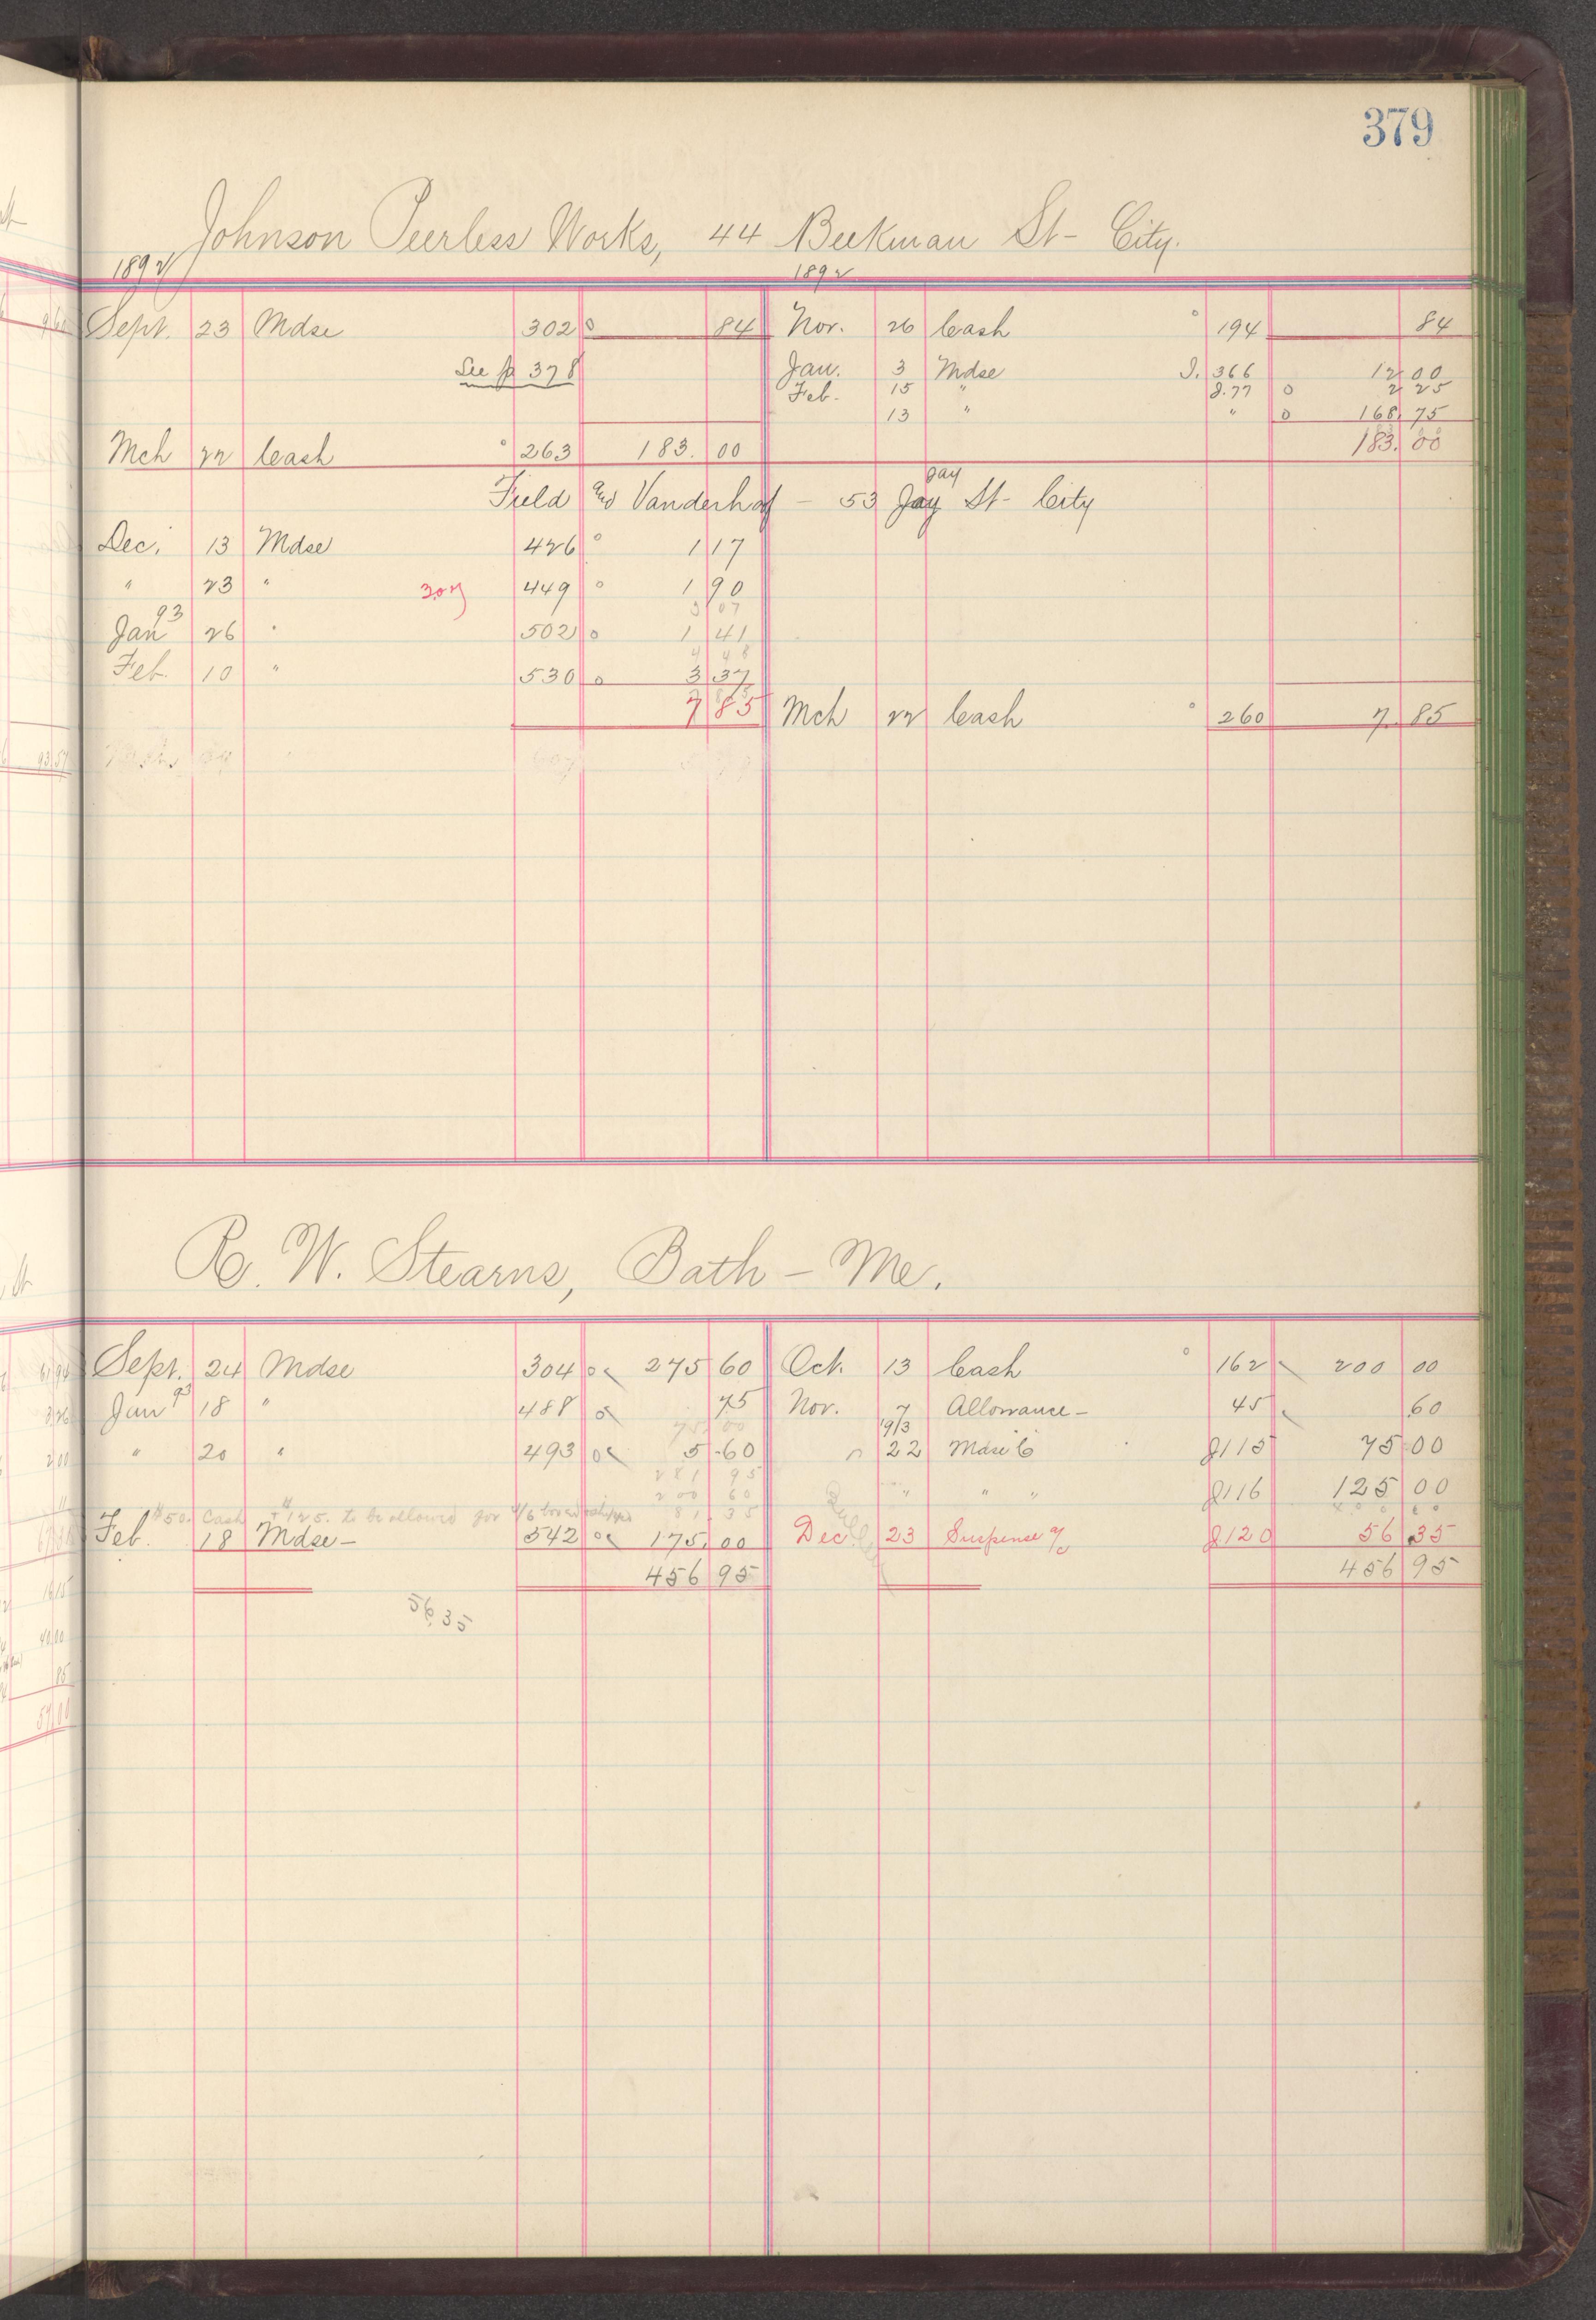 379
Johnson Peerless Works, 44 Beekman St- City.
1892 1892
Sept. 23 Mdse 302 84 Nov. 26 Cash 194 84
See p 378 Jan. 3 Mdse J. 366 12 00
Feb. 15 " J. 77 2 25
13 " " 168 75
Mch 22 Cash 263 183. 00 183. 00
Field and Vanderhoof - 53 Jay St- City
Jay
Dec. 13 Mdse 426 1 17
" 23 " 307 449 1 90
3 07
Jan 93 26 " 502 1 41
4 48
Feb. 10 " 530 3 37
7 85 Mch 22 Cash 260 7. 85
R. W. Stearns, Bath - Me.
Sept. 24 Mdse 304 275 60 Oct. 13 Cash 162 200 00
Jan 93 18 " 488 75 Nov. 7 Allowance - 45 60
" 20 " 493 5 60 " 22 Mdse J115 75 00
281 95
200 60 " " " J116 125 00
$50. Cash + $125. to be allowed for 81 35
Feb. 18 Mdse - 542 175. 00 Dec 23 Suspense a/c J.120 56 35
456 95 456 95
56.35